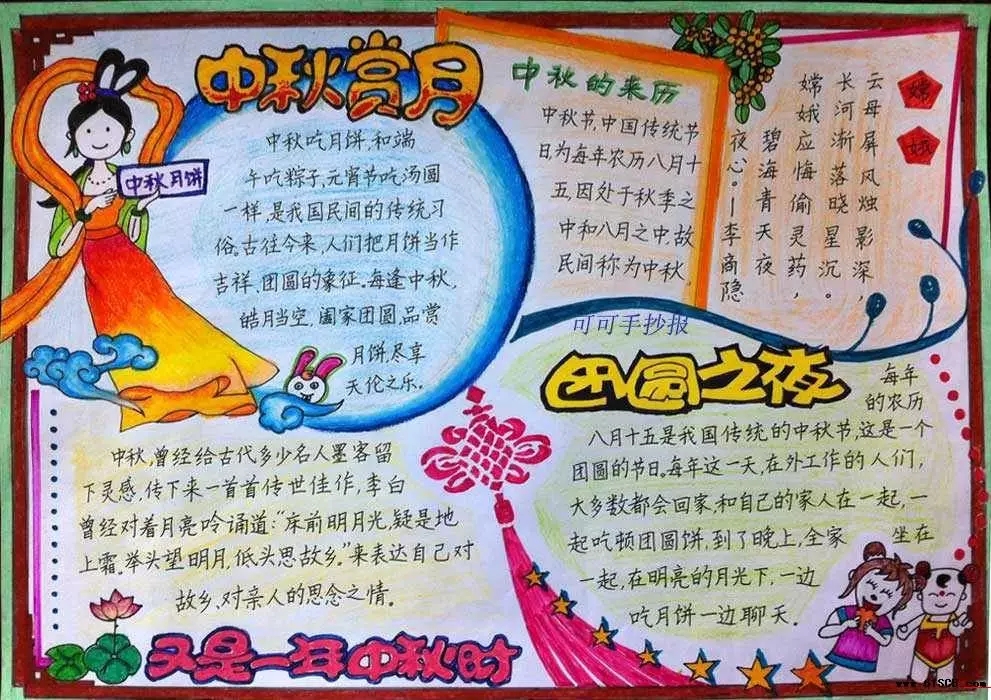 中秋赏月
中秋月饼
中秋吃月饼,和端
午吃粽子,元宵节吃汤圆
一样,是我国民间的传统习
俗。古往今来,人们把月饼当作
吉祥、团圆的象征。每逢中秋,
皓月当空,阖家团圆,品赏
月饼,尽享
天伦之乐。
中秋的来历
中秋节,中国传统节
日为每年农历八月十
五,因处于秋季之
中和八月之中,故
民间称为中秋,
嫦娥
云母屏风烛影深,
长河渐落晓星沉。
嫦娥应悔偷灵药,
碧海青天夜
夜心。—李商隐
可可手抄报
团圆之夜
每年
的农历
八月十五是我国传统的中秋节,这是一个
团圆的节日。每年这一天,在外工作的人们,
大多数都会回家,和自己的家人在一起,一
起吃顿团圆饼,到了晚上,全家 坐在
一起,在明亮的月光下,一边
吃月饼一边聊天.
中秋,曾经给古代多少名人墨客留
下灵感,传下来一首首传世佳作,李白
曾经对着月亮吟诵道:“床前明月光,疑是地
上霜。举头望明月,低头思故乡。”来表达自己对
故乡、对亲人的思念之情。
又是一年中秋时